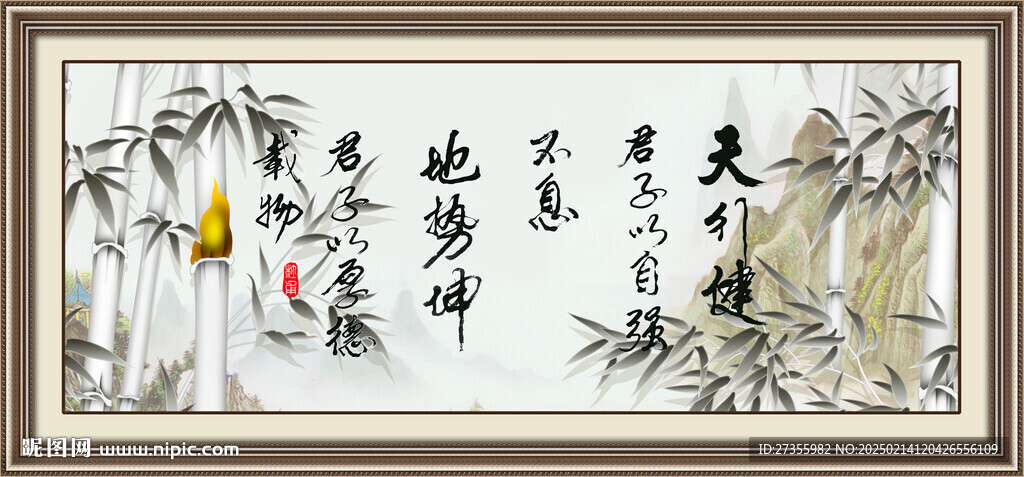 天行健
君子以自强
不息
地势坤
君子以厚德
载物
昵图网 www.nipic.com
ID:27355982 NO:20250214120426556109